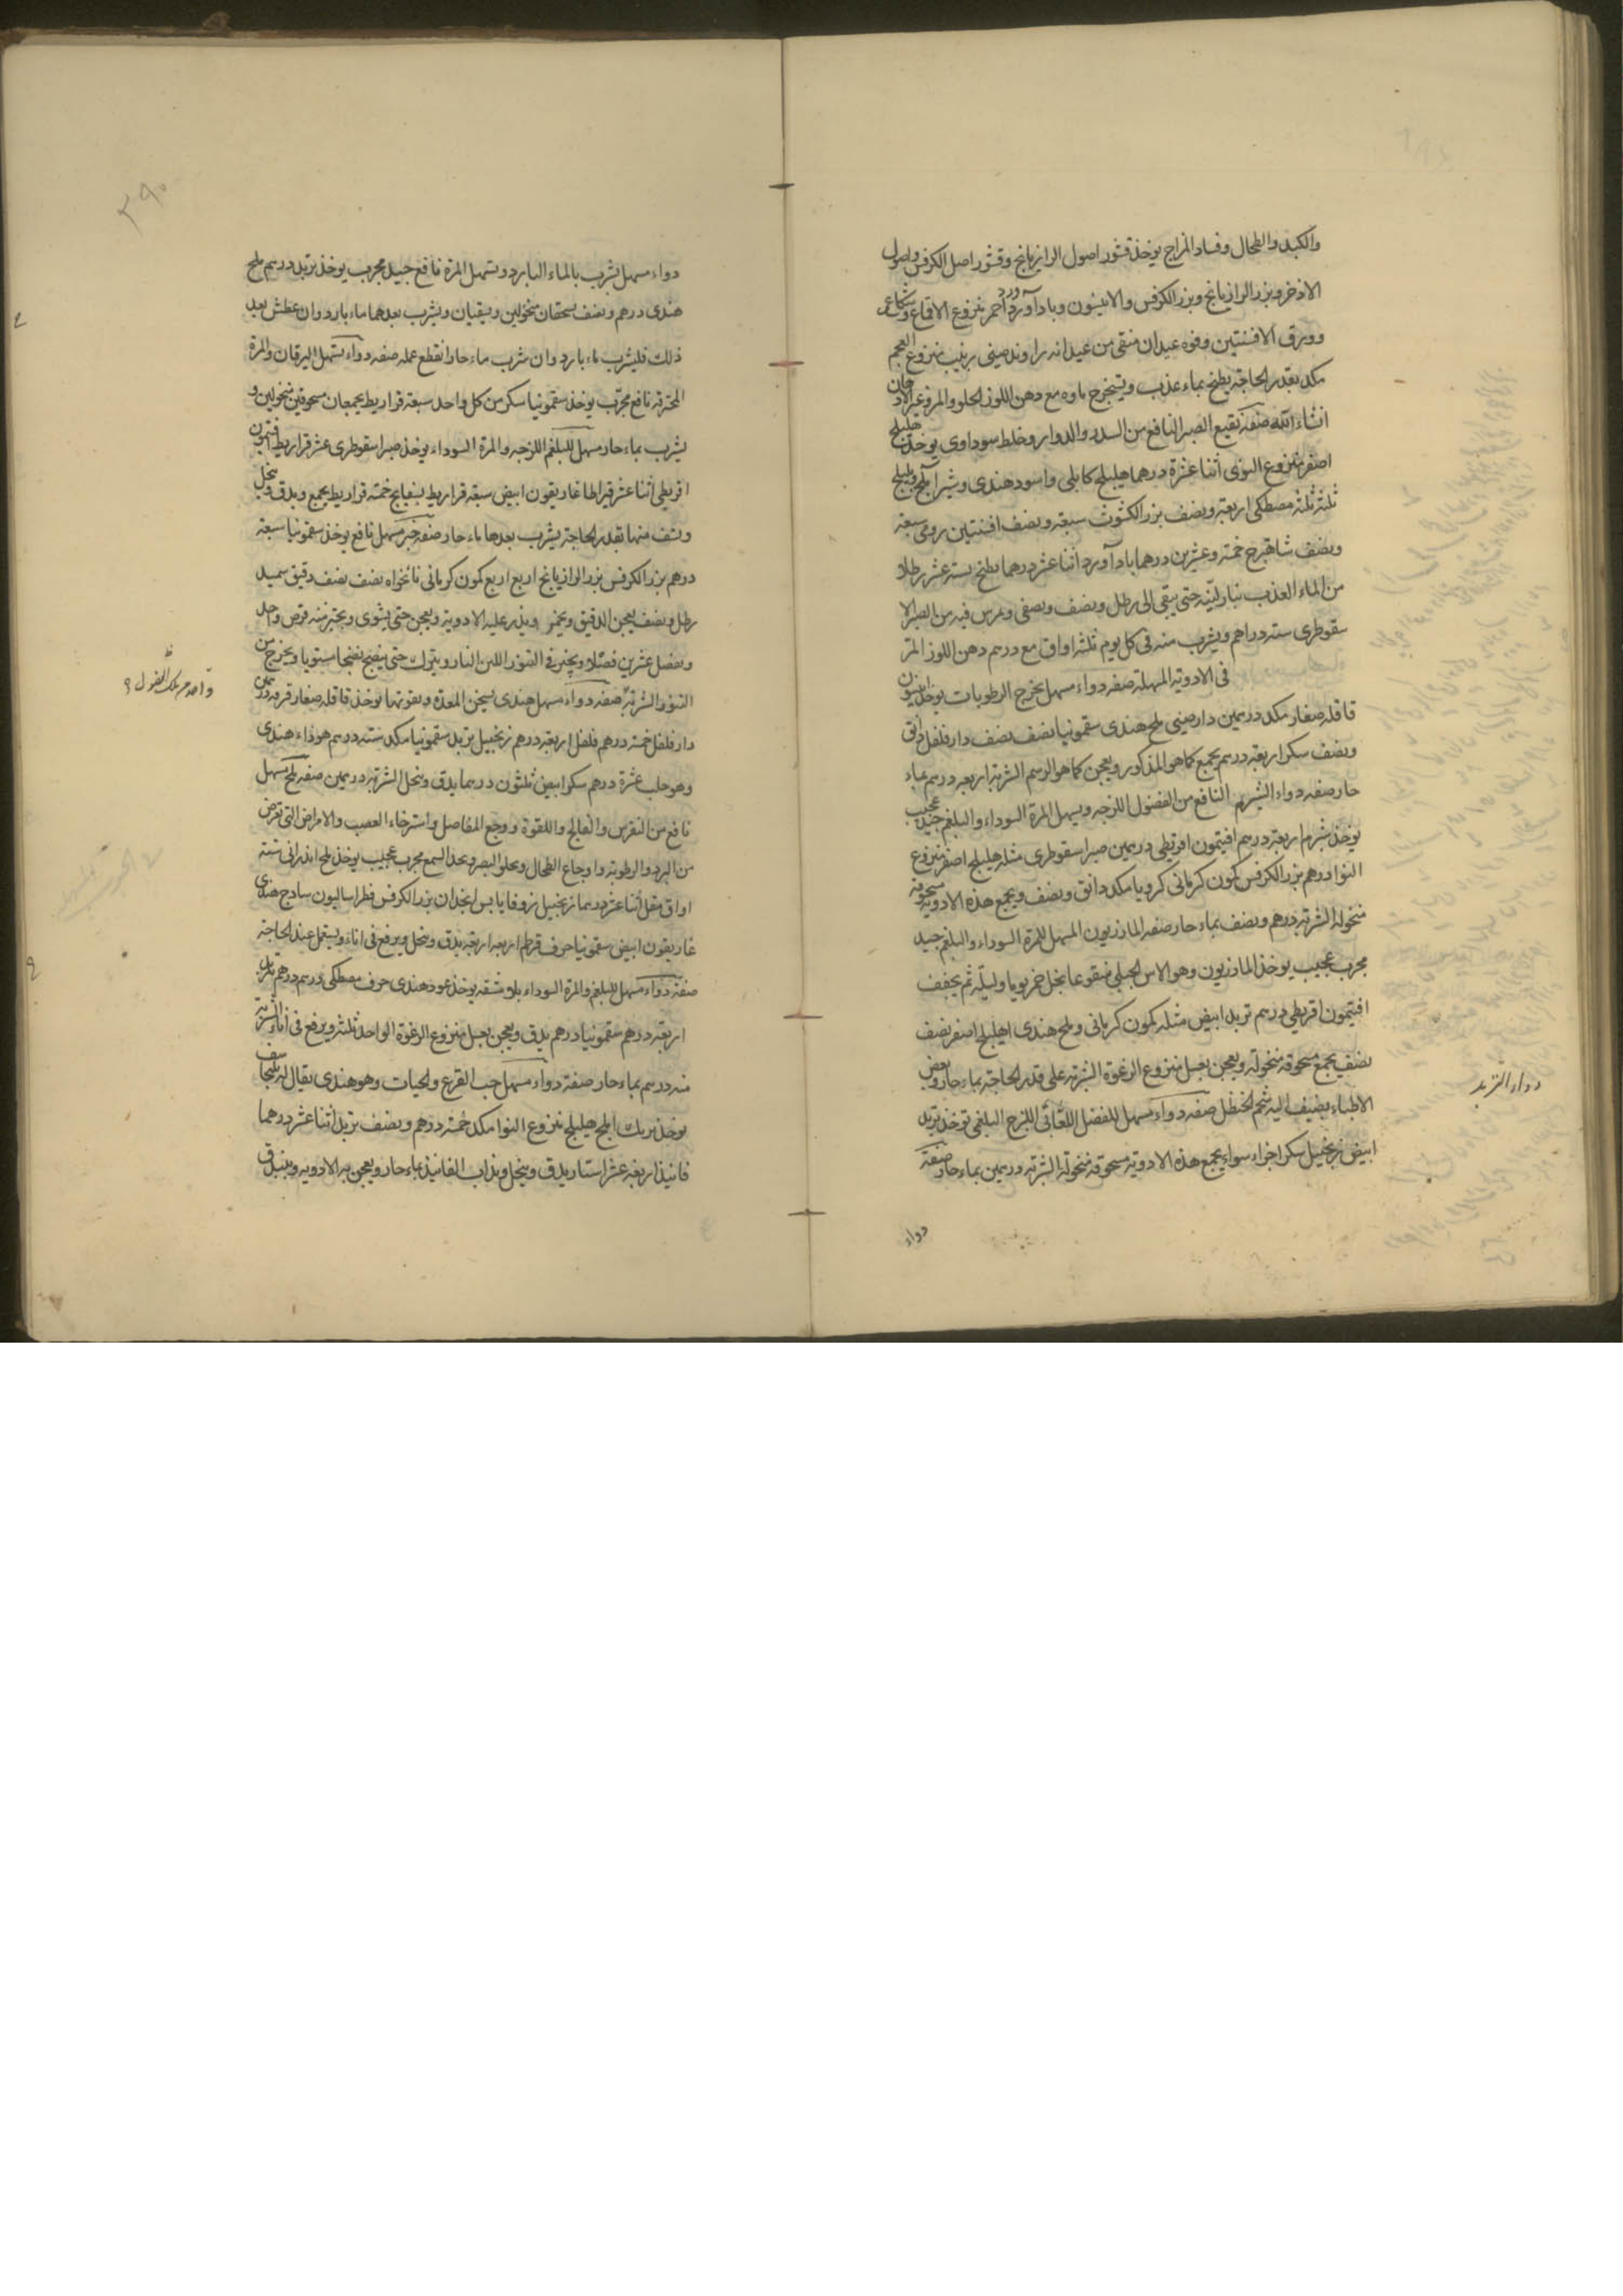 والكبد والطحال وفساد المزاج يوخذ قشور اصول الرازيانج وقشور اصل الكرفس واصول
الاذخر وبزر الرازيانج وبزر الكرفس والانيسون وباداورد ورد احمر منزوع الاقماع وشكاعى
وورق الافسنتين وفوه عيدان منقى من عيدانه راوند صينى زبيب منزوع العجم
مكد بقدر الحاجة يطبخ بماء عذب ويستخرج ماوه مع دهن اللوز الحلو والمر وغير الادهان
انشاء الله صفة نقيع الصبر النافع من السدد والدوار وخلط سوداوى يوخذ هليلج
اصفر منزوع النوى اثنا عشرة درهما هليلج كابلى واسود هندى وشير املج وبليلج
ثلثة ثلثة مصطكى اربعة ونصف بزر الكشوث سبعة ونصف افسنتين رومى سبعة
ونصف شاهترج خمسة وعشرين درهما باداورد اثنا عشر درهما يطبخ بستة عشر رطلا
من الماء العذب بنار لينه حتى يبقى الى رطل ونصف ويصفى ويمرس فيه من الصبر الا
سقوطرى ستة دراهم ويشرب منه فى كل يوم ثلثة اواق مع درهم دهن اللوز المر
فى الادوية المسهلة صفة دواء مسهل يخرج الرطوبات يوخذ انيسون
قاقله صغار مكد درهمين دارصينى ملح هندى سقمونيا نصف نصف دارفلفل دانق
ونصف سكر اربعة درهم يجمع كما هو المذكور ويعجن كما هو الرسم الشربة اربعة درهم بماء
حار صفة دواء الشبرم النافع من الفضول اللزجة ويسهل المرة السوداء والبلغم جيد عجيب
يوخذ شبرم اربعة درهم افتيمون اقريطى درهمين صبر اسقوطرى مثله هليلج اصفر منزوع
النوا درهم بزر الكرفس كمون كرمانى كرويا مكد دانق ونصف ويجمع هذه الادوية مسحوقة
منخولة الشربة درهم ونصف بماء حار صفة المازريون المسهل للمرة السوداء والبلغم جيد
مجرب عجيب يوخذ المازريون وهو الاس الجبلى منقوعا بخل خمر يوما وليلة ثم يجفف
افتيمون اقريطى درهم تربد ابيض مثله كمون كرمانى وملح هندى اهليلج اصفر نصف
نصف يجمع مسحوقة منخولة ويعجن بعسل منزوع الرغوة الشربة على قدر الحاجة بماء حار وبعض
الاطباء يضيف اليه شحم الحنظل صفة دواء مسهل للفضل اللعابى اللزج البلغمى توخذ تربد
ابيض زنجبيل سكر اجزاء سواء يجمع هذه الادوية مسحوقة منخولة الشربة درهمين بماء حار صفة
دواء
دواء التربد
٣٩٠
دواء مسهل يشرب بالماء البارد ويسهل المرة نافع جيد مجرب يوخذ تربد درهم ملح
هندى درهم ونصف يسحقان منخولين ويسقيان ويشرب بعدهما ماء بارد وان عطش بعد
ذلك فليشرب ماء بارد وان شرب ماء حار انقطع عمله صفة دواء يسهل اليرقان والمرة
المحترقة نافع مجرب يوخذ سقمونيا سكر من كل واحد سبعة قراريط يجمعان مسحوقين منخولين و
يشرب بماء حار مسهل للبلغم اللزجه والمرة السوداء يوخذ صبر اسقوطرى عشر قراريط افتيمون
اقريطى اثنا عشر قيراطا غاريقون ابيض سبعة قراريط بسفايج خمسة قراريط يجمع ويدق وينخل
ويسف منها بقدر الحاجة يشرب بعدها ماء حار صفة خبز مسهل نافع يوخذ سقمونيا سبعة
درهم بزر الكرفس بزر الرازيانج اربع اربع كمون كرمانى نانخواه نصف نصف دقيق سميد
رطل ونصف يعجن الدقيق ويخمر ويذر عليه الادوية ويعجن حتى يستوى ويخبز منه قرص واحد
ويفصل عشرين فصلا ويخبز فى التنور اللين النار ويترك حتى ينضج نضجا مستويا ويخرج من
التنور الشربة صفة دواء مسهل هندى يسخن المعدة ويقويها يوخذ قاقله صغار قرفه درهمين
دارفلفل خمسة درهم فلفل اربعة درهم زنجبيل تربد سقمونيا مكد ستة درهم هوذاء هندى
وهو حلب عشرة درهم سكر ابيض ثلثون درهما يدق وينخل الشربة درهمين صفة ملح مسهل
نافع من النقرس والفالج واللقوة ووجع المفاصل واسترخاء العصب والامراض التى تعرض
من البرد والرطوبة واوجاع الطحال ويجلو البصر ويحد السمع مجرب عجيب يوخذ ملح اندرانى ستة
اواق مقل اثنا عشر درهما زنجبيل زوفا يابس انجدان بزر الكرفس فطراساليون ساذج هندى
غاريقون ابيض سقمونيا حرف قرطم اربعة اربعة يدق وينخل ويرفع فى اناء ويستعمل عند الحاجة
صفة دواء مسهل للبلغم والمرة السوداء بلا مشقة يوخذ عود هندى حرف مصطكى درهم درهم تربد
اربعة درهم سقمونيا درهم يدق ويعجن بعسل منزوع الرغوة الواحد ثلثة ويرفع فى اناء الشربة
منه درهم بماء حار صفة دواء مسهل حب القرع والحيات وهو هندى يقال له
يوخذ برنك املج هليلج منزوع النوا مكد خمسة درهم ونصف تربد اثنا عشر درهما
فانيذ اربعة عشر استار يدق وينخل ويذاب الفانيذ بماء حار ويعجن به الادوية ويبندق